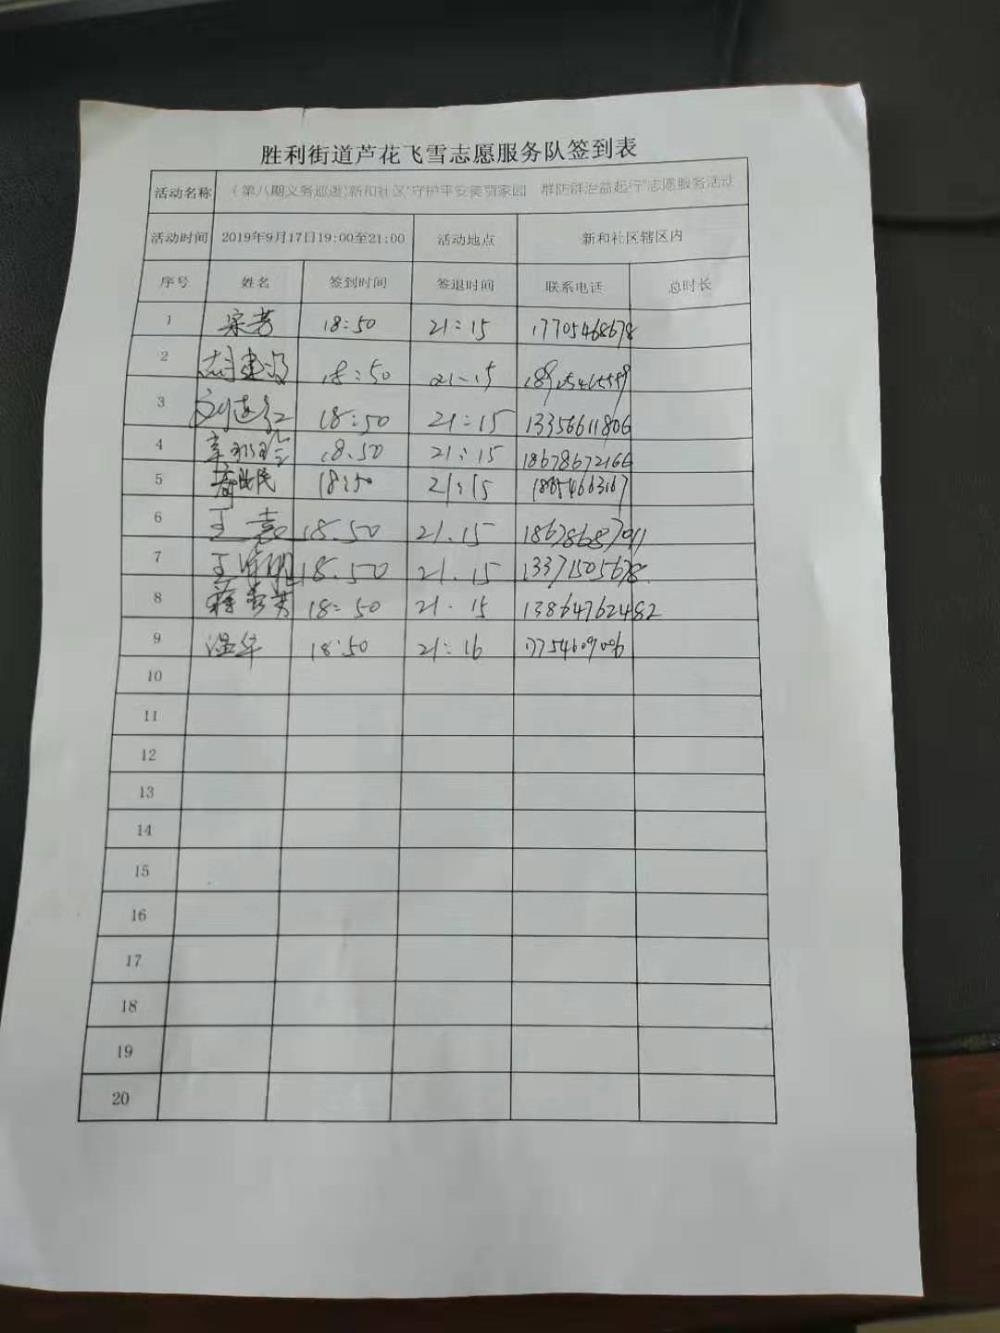 胜利街道芦花飞雪志愿服务队签到表
活动名称 (第八期义务巡逻)新和社区"守护平安美丽家园 群防群治益起行"志愿服务活动
活动时间 2019年9月17日19:00至21:00 活动地点 新和社区辖区内
序号 姓名 签到时间 签退时间 联系电话 总时长
1 宋芳 18:50 21:15 17705468678
2 18:50 21:15
3 刘建红 18:50 21:15 13356611806
4 18.50 21:15 18678672166
5 18:50 21:15 18654663167
6 王嘉 18.50 21.15
7 18.50 21.15 13371505678
8 18:50 21.15 13864762482
9 温华 18:50 21:16
10
11
12
13
14
15
16
17
18
19
20